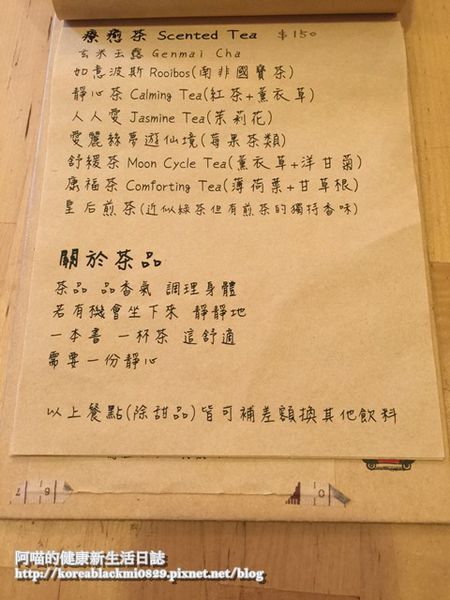 療癒茶 Scented Tea $150
玄米玉露 Genmai Cha
如意波斯 Rooibos(南非國寶茶)
靜心茶 Calming Tea(紅茶+薰衣草)
人人愛 Jasmine Tea(茉莉花)
愛麗絲夢遊仙境(莓果茶類)
舒緩茶 Moon Cycle Tea(薰衣草+洋甘菊)
康福茶 Comforting Tea(薄荷葉+甘草根)
皇后煎茶(近似綠茶但有煎茶的獨特香味)
關於茶品
茶品 品香氣 調理身體
若有機會坐下來 靜靜地
一本書 一杯茶 這舒適
需要一份靜心
以上餐點(除甜品)皆可補差額換其他飲料
阿喵的健康新生活日誌
http://koreablackmi0829.pixnet.net/blog